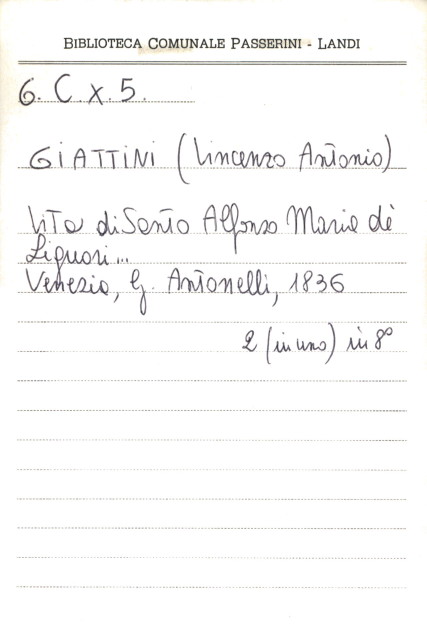 BIBLIOTECA COMUNALE PASSERINI - LANDI
6. C. x. 5.
GIATTINI (Vincenzo Antonio)
Vita di Santo Alfonso Maria dè
Liguori...
Venezia, G. Antonelli, 1836
2 (in uno) in 8°